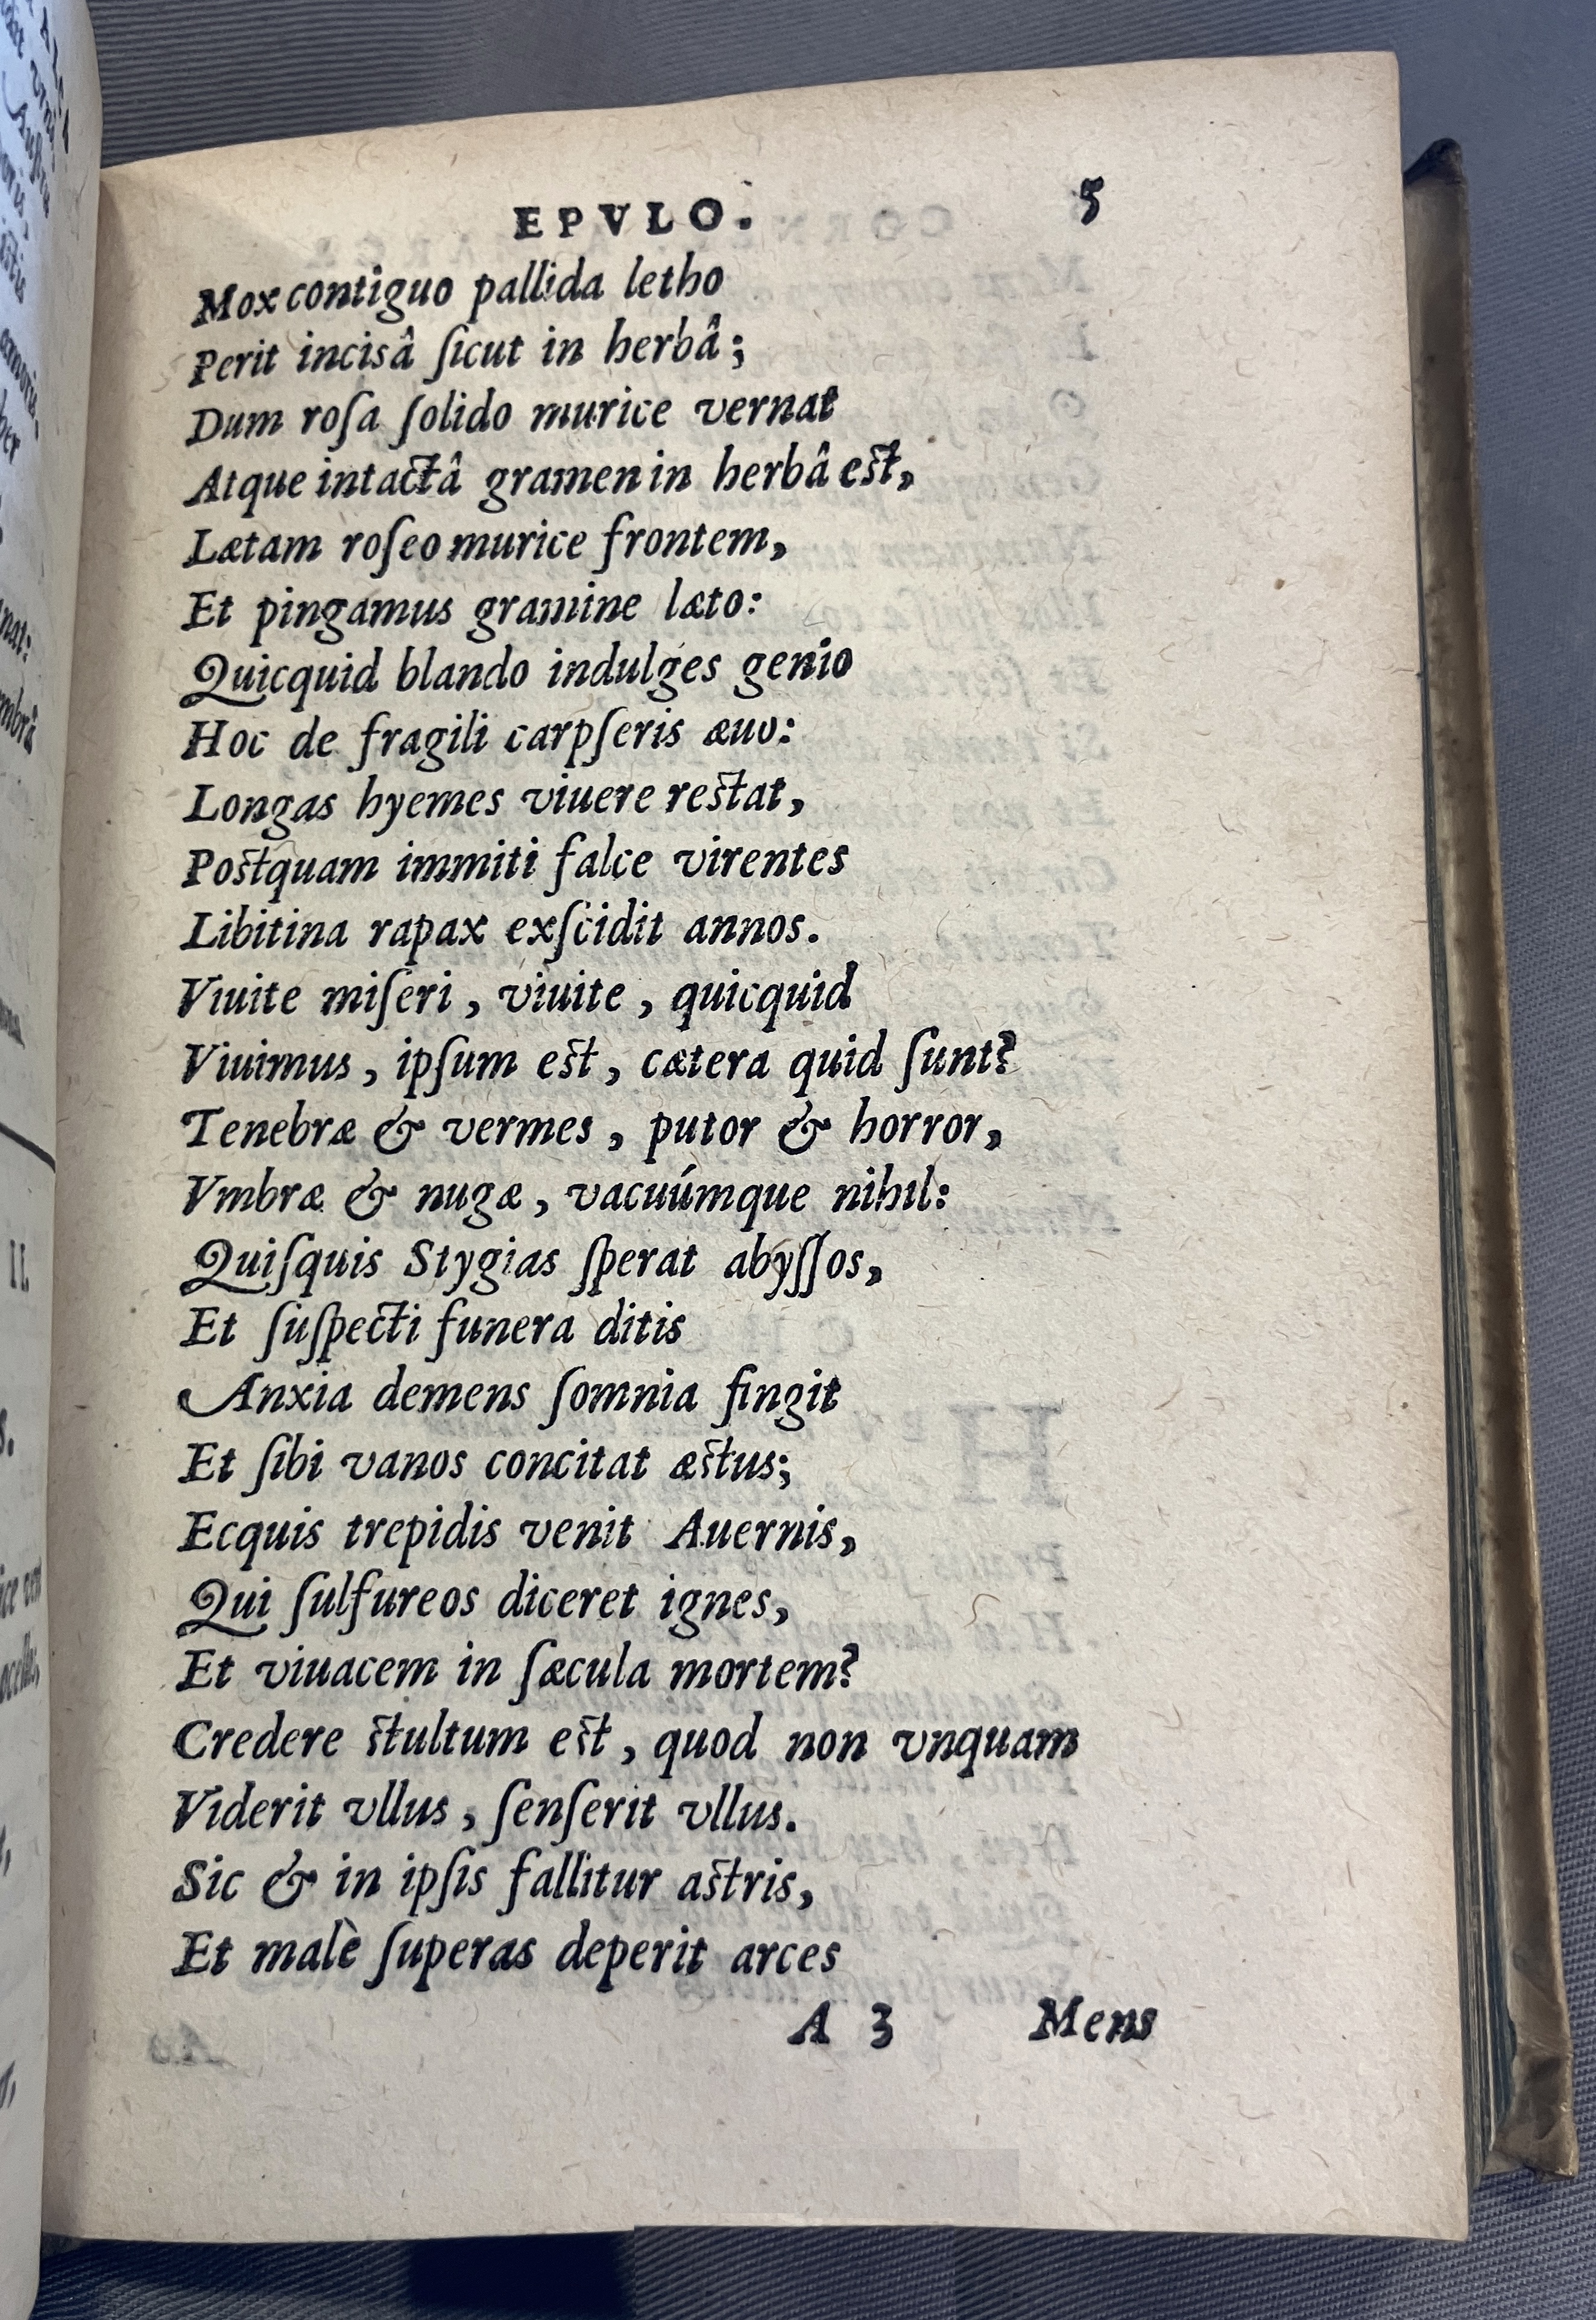 EPVLO. 5
Mox contiguo pallida letho
Perit incisâ ſicut in herbâ;
Dum roſa ſolido murice vernat
Atque intactâ gramen in herbâ est,
Lætam roſeo murice frontem,
Et pingamus gramine læto:
Quicquid blando indulges genio
Hoc de fragili carpſeris æuo:
Longas hyemes viuere restat,
Postquam immiti falce virentes
Libitina rapax exſcidit annos.
Viuite miſeri, viuite, quicquid
Viuimus, ipſum est, cætera quid ſunt?
Tenebræ & vermes, putor & horror,
Vmbræ & nugæ, vacuúmque nihil:
Quiſquis Stygias ſperat abyſſos,
Et ſuſpecti funera ditis
Anxia demens ſomnia fingit
Et ſibi vanos concitat æstus;
Ecquis trepidis venit Auernis,
Qui ſulfureos diceret ignes,
Et viuacem in ſæcula mortem?
Credere stultum est, quod non vnquam
Viderit vllus, ſenſerit vllus.
Sic & in ipſis fallitur astris,
Et malè ſuperas deperit arces
A 3 Mens